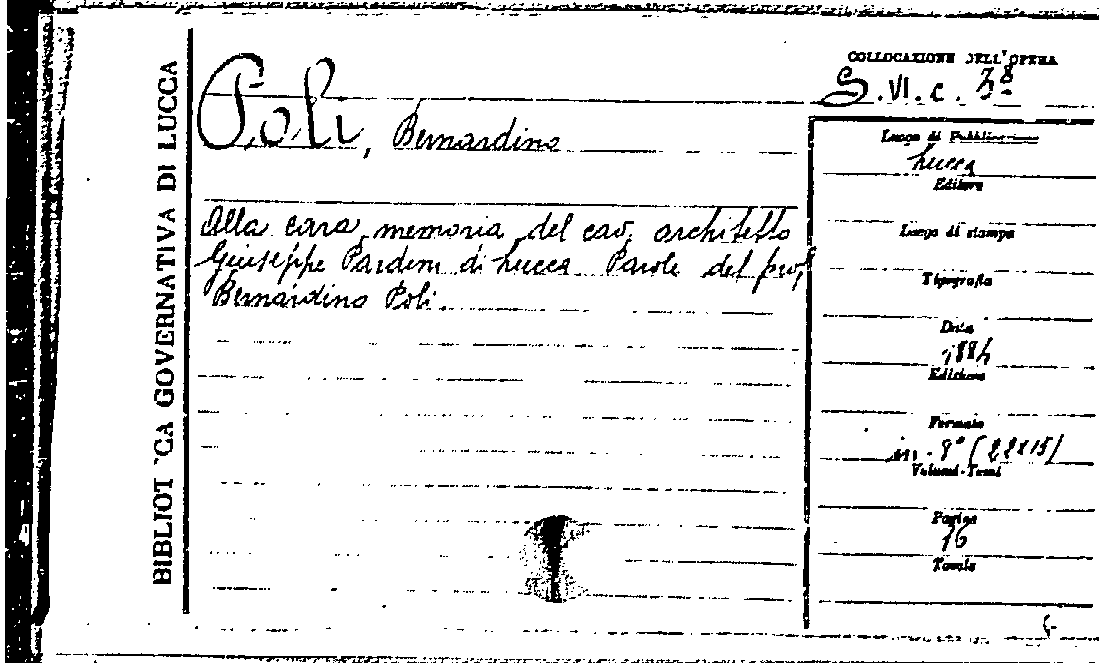 BIBLIOT CA GOVERNATIVA DI LUCCA
Poli, Bernardino
Alla cara memoria del cav. architetto
Giuseppe Pardini di Lucca Parole del prof.
Bernardino Poli.
COLLOCAZIONE DELL'OPERA
S.VI.c.
Luogo di Pubblicazione
Lucca
Editore
Luogo di stampa
Tipografia
Data
Edizione
Formato
in-8° (22x15)
Volumi-Tomi
Pagine
16
Tavole